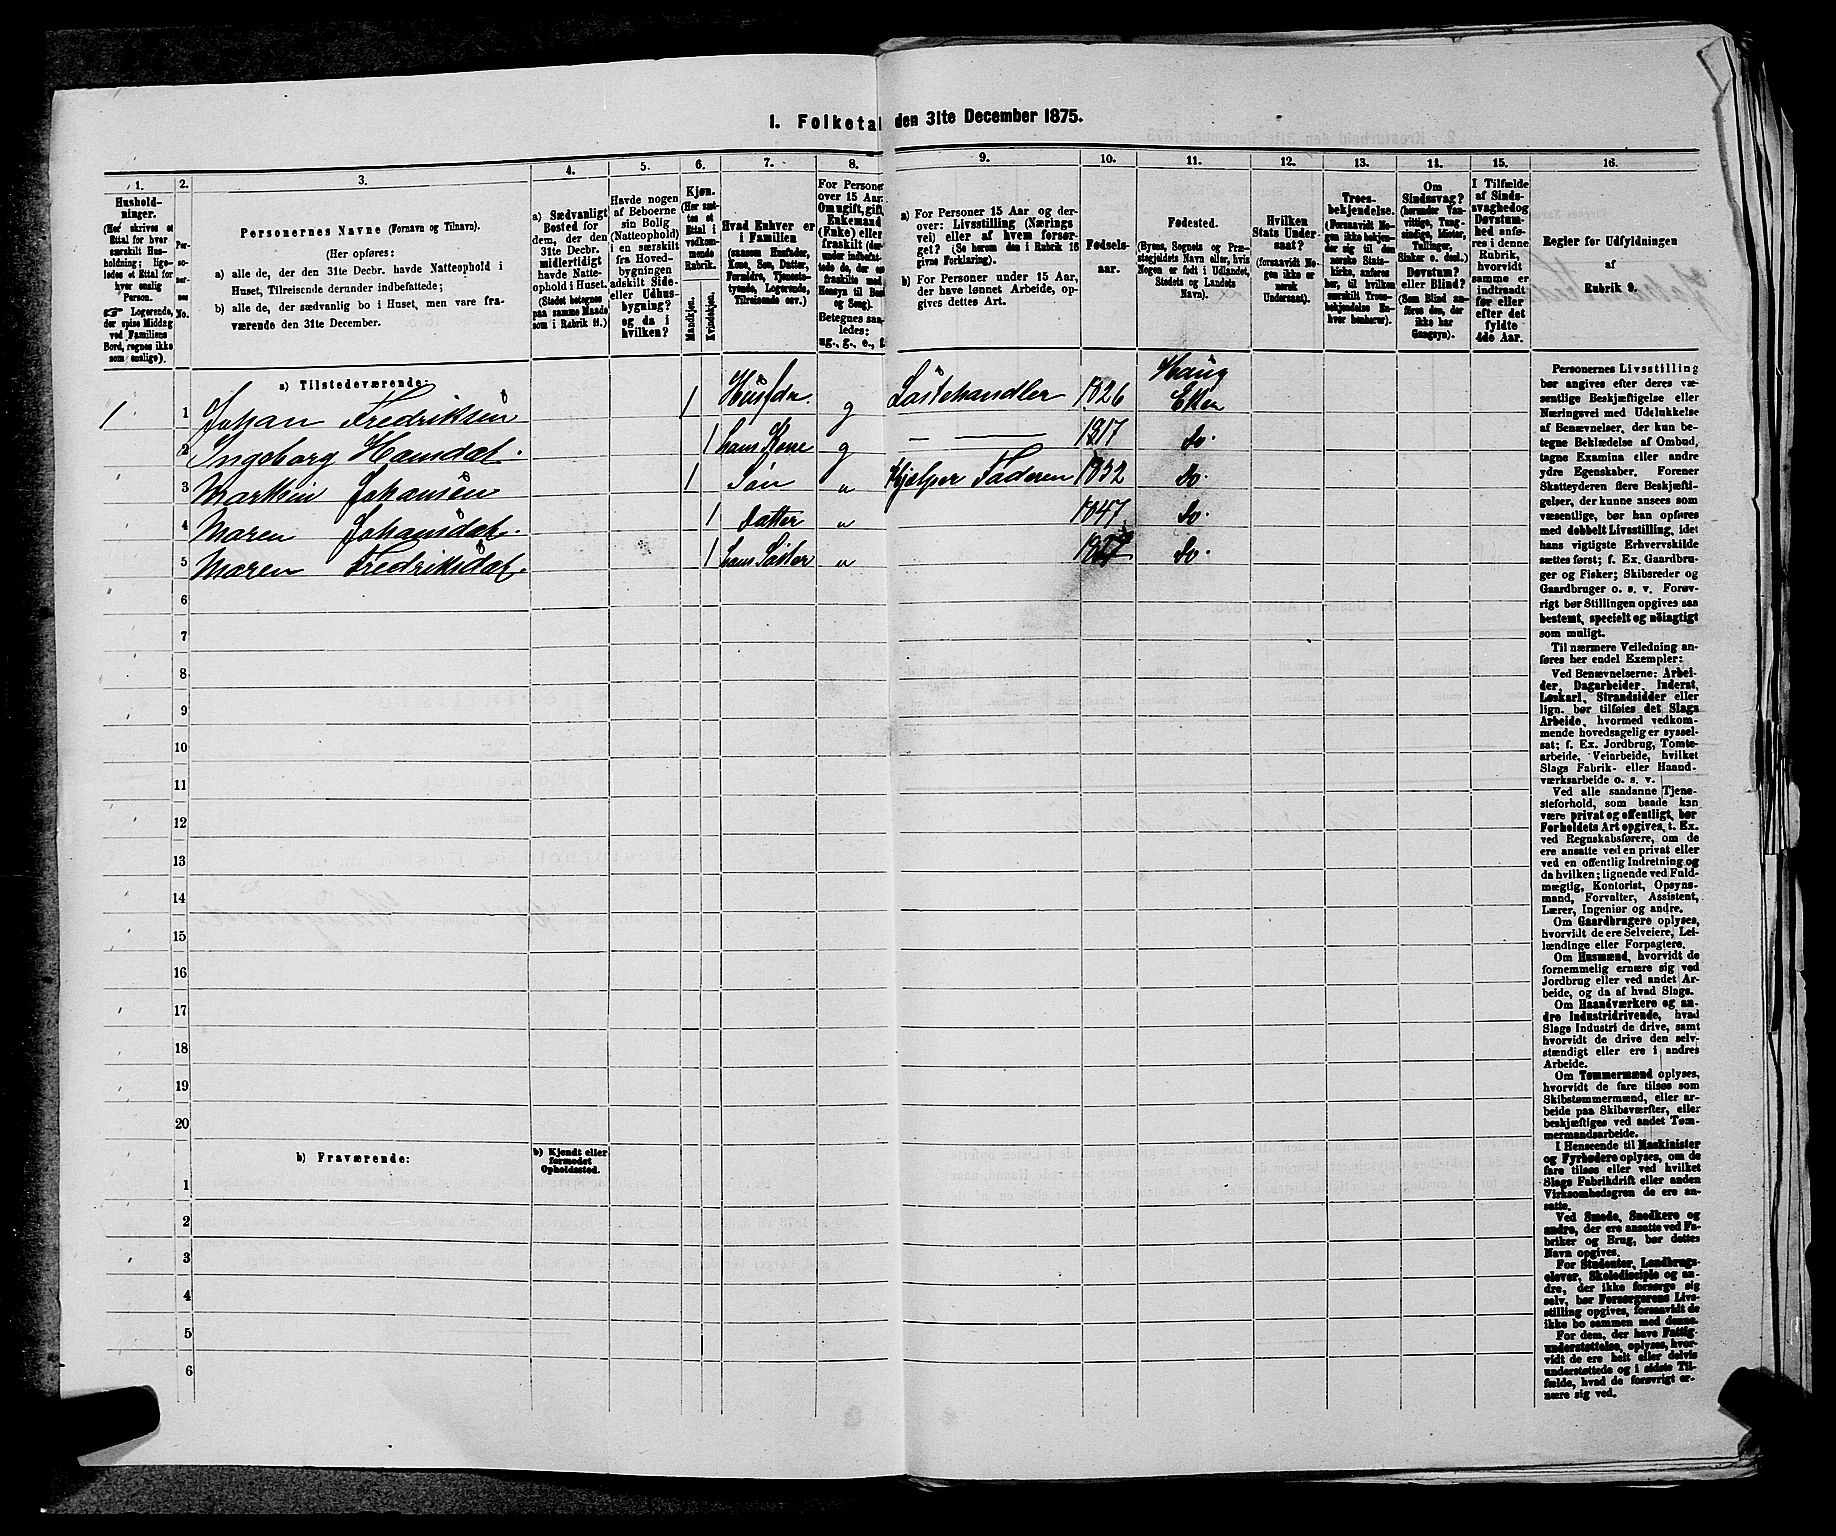 I. Folketal den 31te December 1875.
1.
Husholdninger.
(Her skrives et
Ettal for hver
særskilt Husholdning; ligeledes et Ettal for
enslig
Person.
☞ Logerende,
der spise Middag
ved Familiens
Bord, regnes ikke
som enslige).
2.
Personernes
No.
3.
Personernes Navne (Fornavn og Tilnavn).
(Her opføres:
a) alle de, der den 31te Decbr. havde Natteophold i
Huset, Tilreisende derunder indbefattede;
b) alle de, der sædvanlig bo i Huset, men vare fraværende den 31te December.
4.
a) Sædvanligt
Bosted for
dem, der den
31te Decbr.
midlertidigt
havde Natteophold i Huset.
(Stedet betegnes
paa samme Maade
som i Rubrik 11.)
5.
Havde nogen
af Beboerne
sin Bolig
(Natteophold)
i en særskilt
fra Hovedbygningen
adskilt Side- eller Udhusbygning?
og da i
hvilken?
6.
Kjøn.
(Her sættes et
Ettal i
vedkommende
Rubrik.)
Mandkjøn.
Kvindekjøn.
7.
Hvad Enhver er
i Familien
(saasom Husfader,
Kone, Søn, Datter,
Forældre, Tjenestetyende, Logerende,
Tilreisende osv.)
8.
For Personer
over 15 Aar:
Om ugift, gift,
Enkemand
(Enke) eller
fraskilt
Betegnes saaledes:
ug., g., e., f.
9.
a) For Personer 15 Aar og derover: Livsstilling (Næringsvei) eller af hvem forsørget? (Se herom den i Rubrik 16
givne Forklaring).
b) For Personer under 15 Aar,
der have lønnet Arbeide, opgives dettes Art.
10.
Fødselsaar.
11.
Fødested.
(Byens, Sognets og Præstegjeldets Navn eller, hvis
Nogen er født i Udlandet,
Stedets og Landets
Navn).
12.
Hvilken
Stats Undersaat?
(forsaavidt Nogen ikke er
norsk
Undersaat).
13.
Troesbekjendelse.
(Forsaavidt Nogen ikke bekjender sig til den
norske Statskirke, anføres
her, til hvilken
særskilt Troesbekjendelse Enhver henhører).
14.
Om
Sindssvag?
(herunder Vanvittige, Tungsindige, Idioter,
Tullinger,
Sinker o. desl.)
Døvstum?
eller Blind?
(Som Blind anføres den, der
ikke har
Gangsyn).
15.
I Tilfælde
af Sindssvaghed og
Døvstumhed anføres
i denne
Rubrik,
hvorvidt
samme er
indtraadt
før eller
efter det
fyldte
4de Aar.
16.
Regler for Udfyldningen
af
Rubrik 9.
a) Tilstedeværende:
1 1 Johan Fredriksen 1 Husfdr. g Løstehandler 1826 Haug Eker
2 Ingeborg Hansdat. 1 hans Kone g — — 1817 do.
3 Marthin Johansen 1 Søn " Hjelper Faderen 1852 do.
4 Maren Johansdat. 1 datter " 1847 do.
5 Maren Fredriksdat. 1 hans Søster " do.
6
7
8
9
10
11
12
13
14
15
16
17
18
19
20
b) Fraværende:
b) Kjendt eller
formodet
Opholdssted.
1
2
3
4
5
6
Personernes Livsstilling
bør angives efter deres væsentlige Beskjæftigelse eller
Næringsvei med Udelukkelse
af Benævnelser, der kun betegne Beklædelse af Ombud,
tagne Examina eller andre
ydre Egenskaber. Forener
Skatteyderen flere Beskjæftigelser, der kunne ansees som
væsentlige, bør han opføres
med dobbelt Livsstilling, idet
hans vigtigste Erhvervskilde
sættes først; f. Ex. Gaardbruger og Fisker; Skibsreder og
Gaardbruger o. s. v. Forøvrigt bør Stillingen opgives saa
bestemt, specielt og nöiagtigt
som muligt.
Til nærmere Veiledning anføres her endel Exempler:
Ved Benævnelserne: Arbeider, Dagarbeider, Inderst,
Løskarl, Strandsidder eller
lign. bør tilføies det Slags
Arbeide, hvormed vedkommende hovedsagelig er sysselsat; f. Ex. Jordbrug, Tomtearbeide, Veiarbeide, hvilket
Slags Fabrik- eller Haandværksarbeide o. s. v.
Ved alle saadanne Tjenesteforhold, som baade kan
være privat og offentligt, bør
Forholdets Art opgives, t. Ex.
ved Regnskabsførere, om de
ere ansatte ved en privat eller
ved en offentlig Indretning og
da hvilken; lignende ved Fuldmægtig, Kontorist, Opsynsmand, Forvalter, Assistent,
Lærer, Ingeniør og andre.
Om Gaardbrugere oplyses,
hvorvidt de ere Selveiere, Leilændinge eller Forpagtere.
Om Husmænd, hvorvidt de
fornemmelig ernære sig ved
Jordbrug eller ved andet Arbeide, og da af hvad Slags.
Om Haandværkere og andre Industridrivende, hvad
Slags Industri de drive, samt
hvorvidt de drive den selvstændigt eller ere i andres
Arbeide.
Om Tømmermænd oplyses,
hvorvidt de fare tilsøs som
Skibstømmermænd, eller arbeide paa Skibsværfter, eller
beskjæftiges ved andet Tømmermandsarbeide.
I Henseende til Maskinister
og Fyrbødere oplyses, om de
fare tilsøs eller ved hvilket
Slags Fabrikdrift eller anden
Virksomhedsgren de ere ansatte.
Ved Smede, Snedkere og
andre, der ere ansatte ved Fabriker og Brug, bør dettes
Navn opgives.
For Studenter, Landbrugselever, Skoledisciple og andre, der ikke forsørge sig
selv, bør Forsørgerens Livsstilling opgives, forsaavidt de
ikke bo sammen med denne.
For dem, der have Fattigunderstøttelse, oplyses, hvorvidt de ere helt eller delvis
understøttede og i sidste Tilfælde, hvad de forøvrigt ernære sig ved.